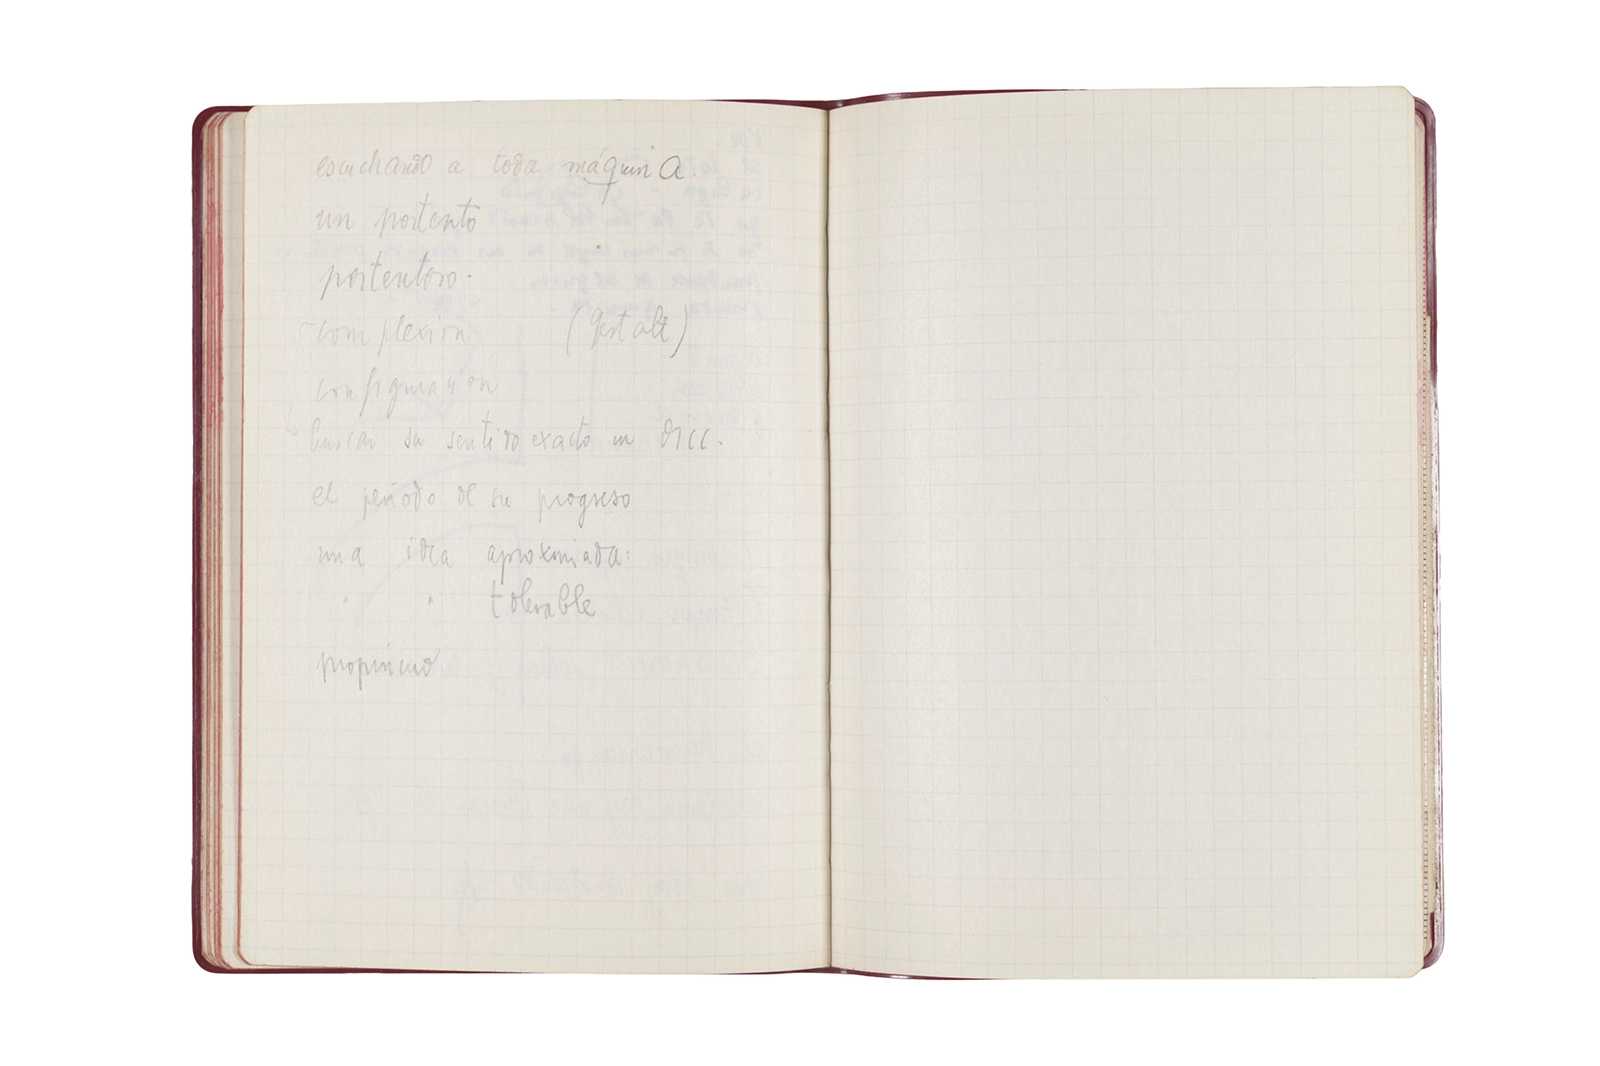 escuchando a toda máquina.
un portento
portentoso.
complexión (Gestalt)
configuración
buscar su sentido exacto en DICC.
el período de su progreso
una idea aproximada:
" " tolerable